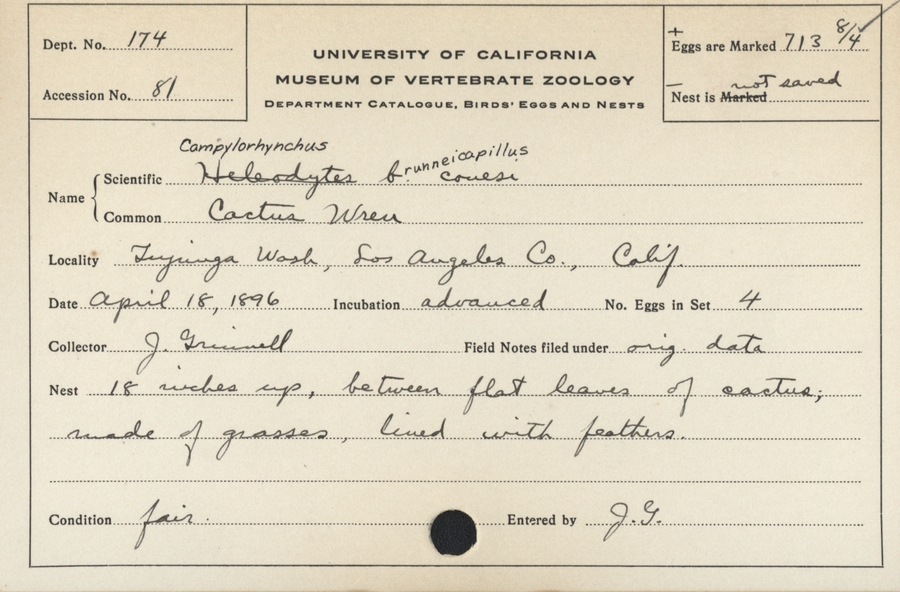 Dept. No. 174
Accession No. 81
UNIVERSITY OF CALIFORNIA
MUSEUM OF VERTEBRATE ZOOLOGY
DEPARTMENT CATALOGUE, BIRDS' EGGS AND NESTS
+
Eggs are Marked 713 8/4
— not saved
Nest is Marked
Campylorhynchus
Name
Scientific Heleodytes brunneicapillus couesi
Common Cactus Wren
Locality Tujunga Wash, Los Angeles Co., Calif.
Date April 18, 1896 Incubation advanced No. Eggs in Set 4
Collector J. Grinnell Field Notes filed under orig. data
Nest 18 inches up, between flat leaves of cactus;
made of grasses, lined with feathers.
Condition fair. Entered by J.G.